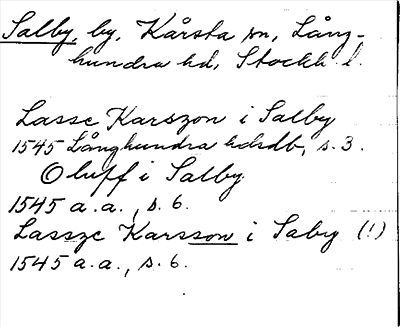 Salby, by, Kårsta sn, Lång-
hundra hd, Stockh. l.
Lasse Karszon i Salby
1545 Långhundra hdsdb, s. 3.
Oluff i Salby
1545 a.a., s. 6.
Lassze Karsson i Saby (!)
1545 a.a., s. 6.